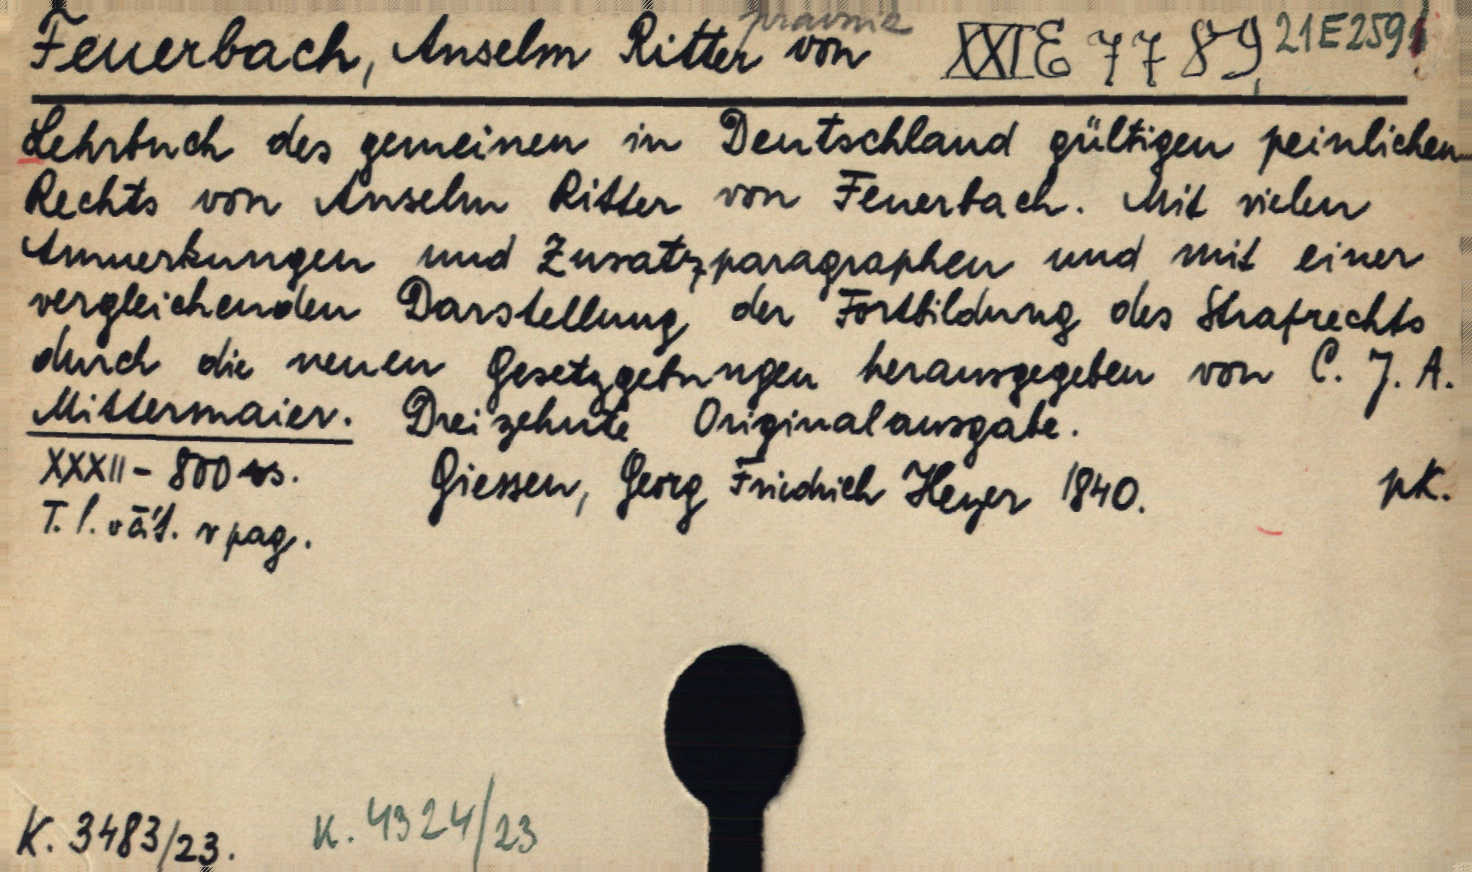 právník
Feuerbach, Anselm Ritter von XXI E 7789, 21E2591
Lehrbuch des gemeinen in Deutschland gültigen peinlichen
Rechts von Anselm Ritter von Feuerbach. Mit vielen
Anmerkungen und Zusatzparagraphen und mit einer
vergleichenden Darstellung der Fortbildung des Strafrechts
durch die neuen Gesetzgebungen herausgegeben von C. J. A.
Mittermaier. Dreizehnte Originalausgabe.
XXXII - 800 s.
Giessen, Georg Friedrich Heyer 1840. pK.
T. l. v pag.
K. 3483/23. K. 4324/23